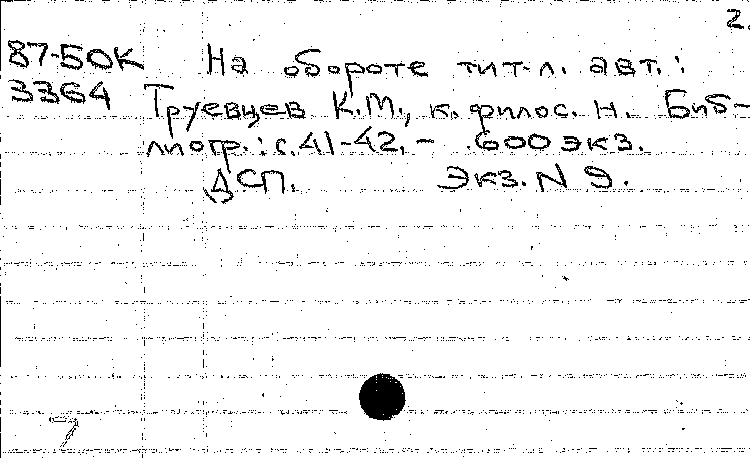 2.
87-50К На обороте тит. л. авт.:
3364 Труевцев К.М., к. филос. н. Биб-
лиогр.: с. 41-42. - 600 экз.
ДСП. Экз. N 9.
7